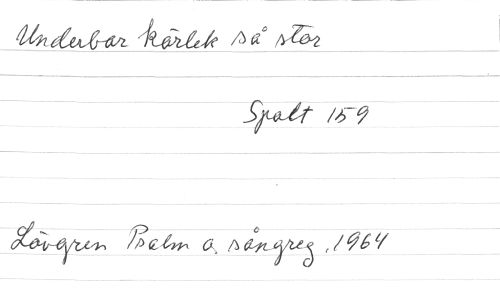 Underbar kärlek så stor
Spalt 159
Lövgren Psalm o. sångreg. 1964